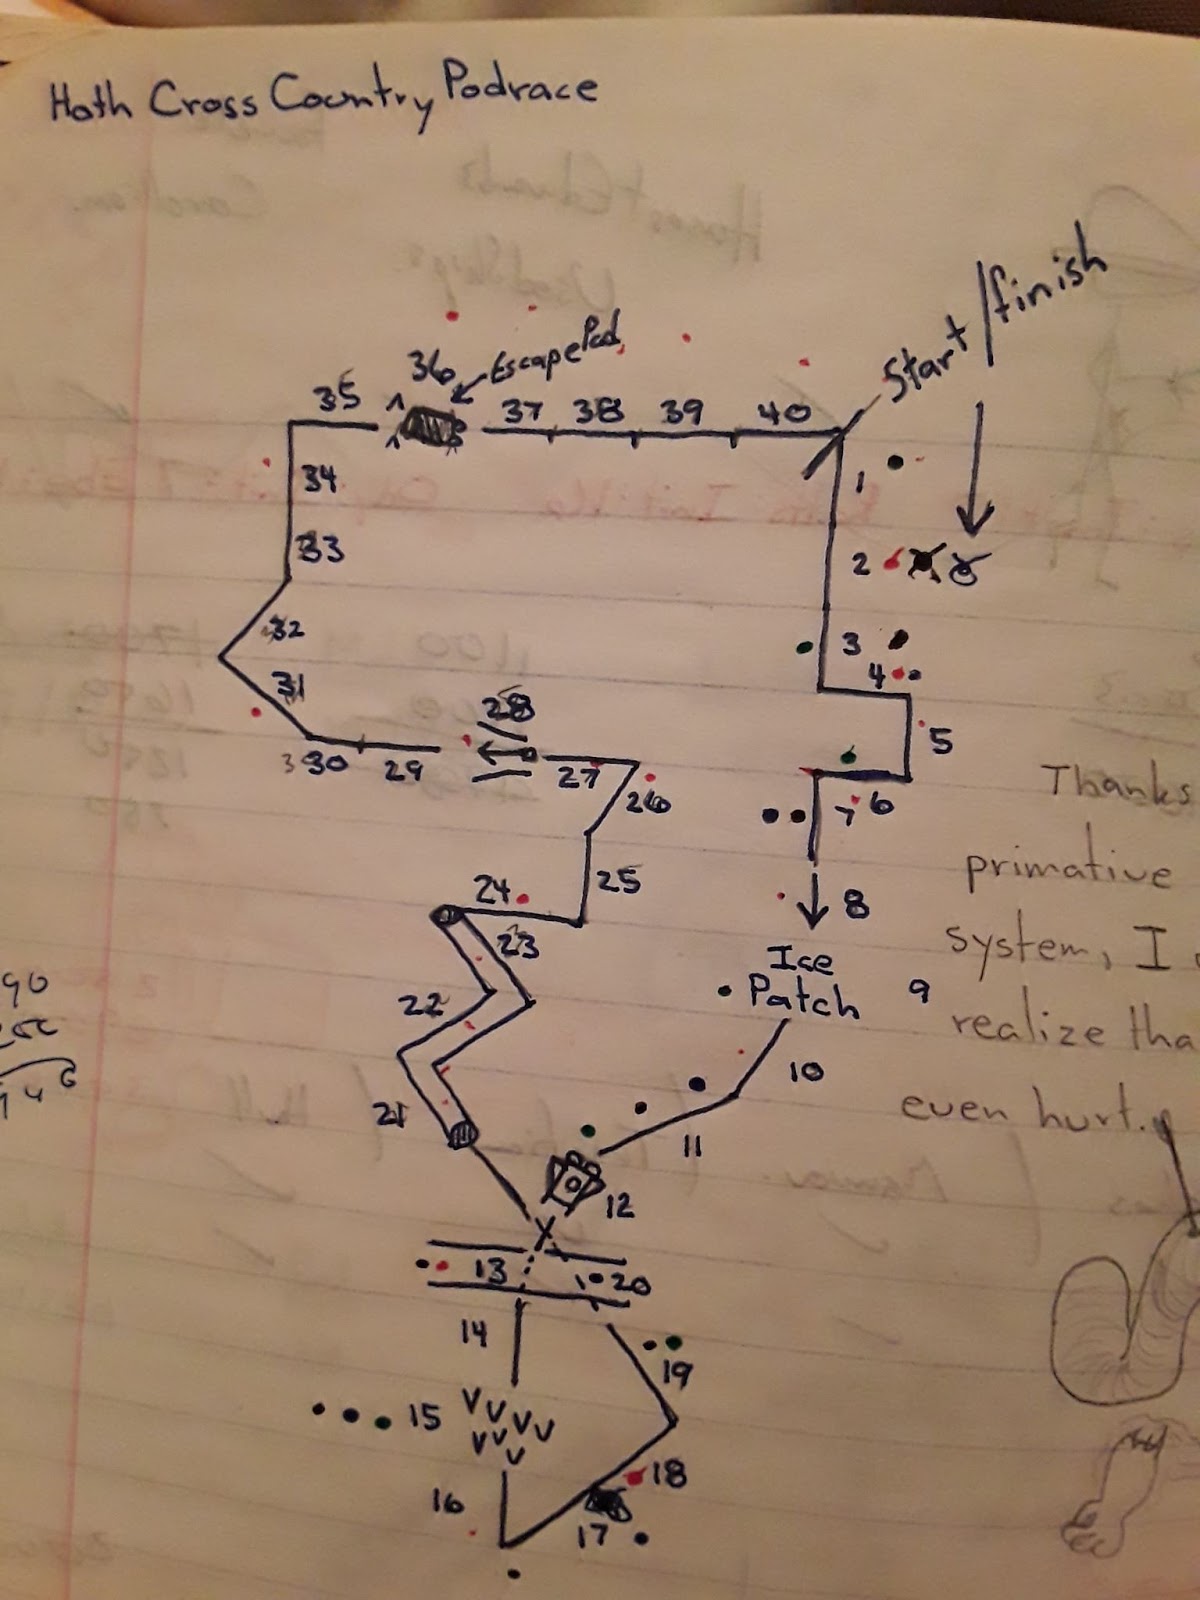 Hoth Cross Country Podrace
Start/finish
36 Escape Pod
35
37 38 39 40
1
34
33
2
32
3
4
31
28
5
30 29
27
26
6
7
25
24
8
23
Ice
Patch
9
22
10
21
11
12
13
20
14
19
15
18
16
17
Thanks
primative
system, I
realize tha
even hurt.